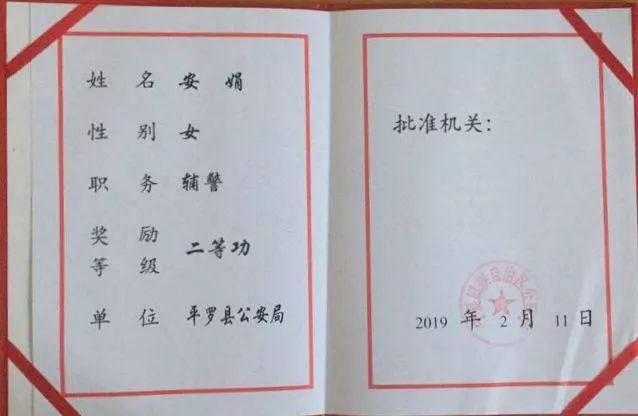 姓名 安娟
性别 女
职务 辅警
奖励等级 二等功
单位 平罗县公安局
批准机关：
2019 年 2 月 11 日